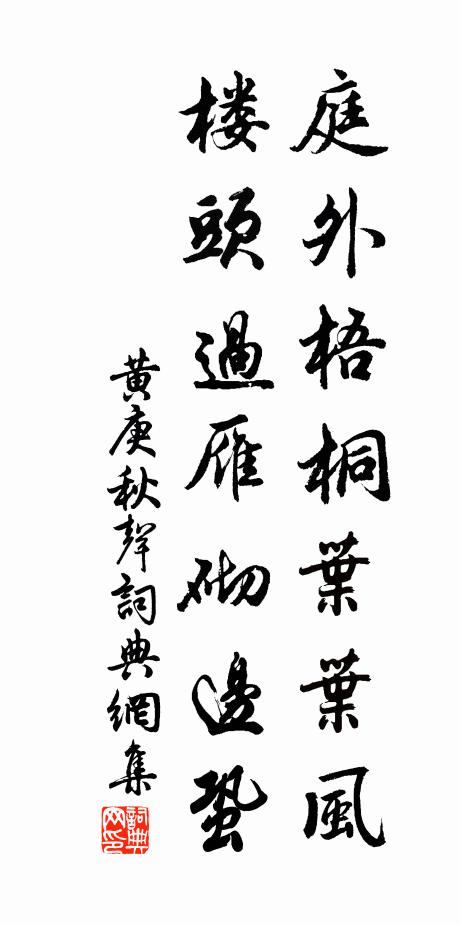 庭外梧桐葉葉風
楼頭過雁砌邊蛩
黃庚秋聲詞典網集
詞典
网印